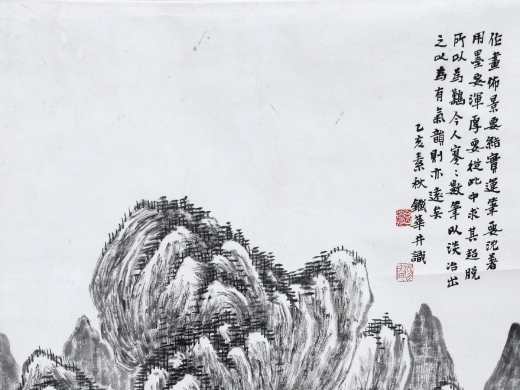 作畫佈景要結實運筆要沈着
用墨要渾厚要從此中求其超脫
所以為難今人寥〻數筆以淡冶出
之以為有氣韻則亦遠矣
乙亥素秋鐵華并識